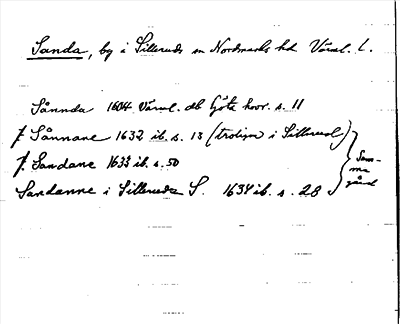 Sanda, by i Silleruds sn Nordmarks hd Värml. l.
Sånnda 1604 Värml. db Göta hovr. s. 11
f. Sånnane 1632 ib. s. 13 (trolign i Sillerud)
f. Sandane 1633 ib. s. 50
Sandanne i Silleruds S. 1634 ib. s. 28
Sam-
ma
gård